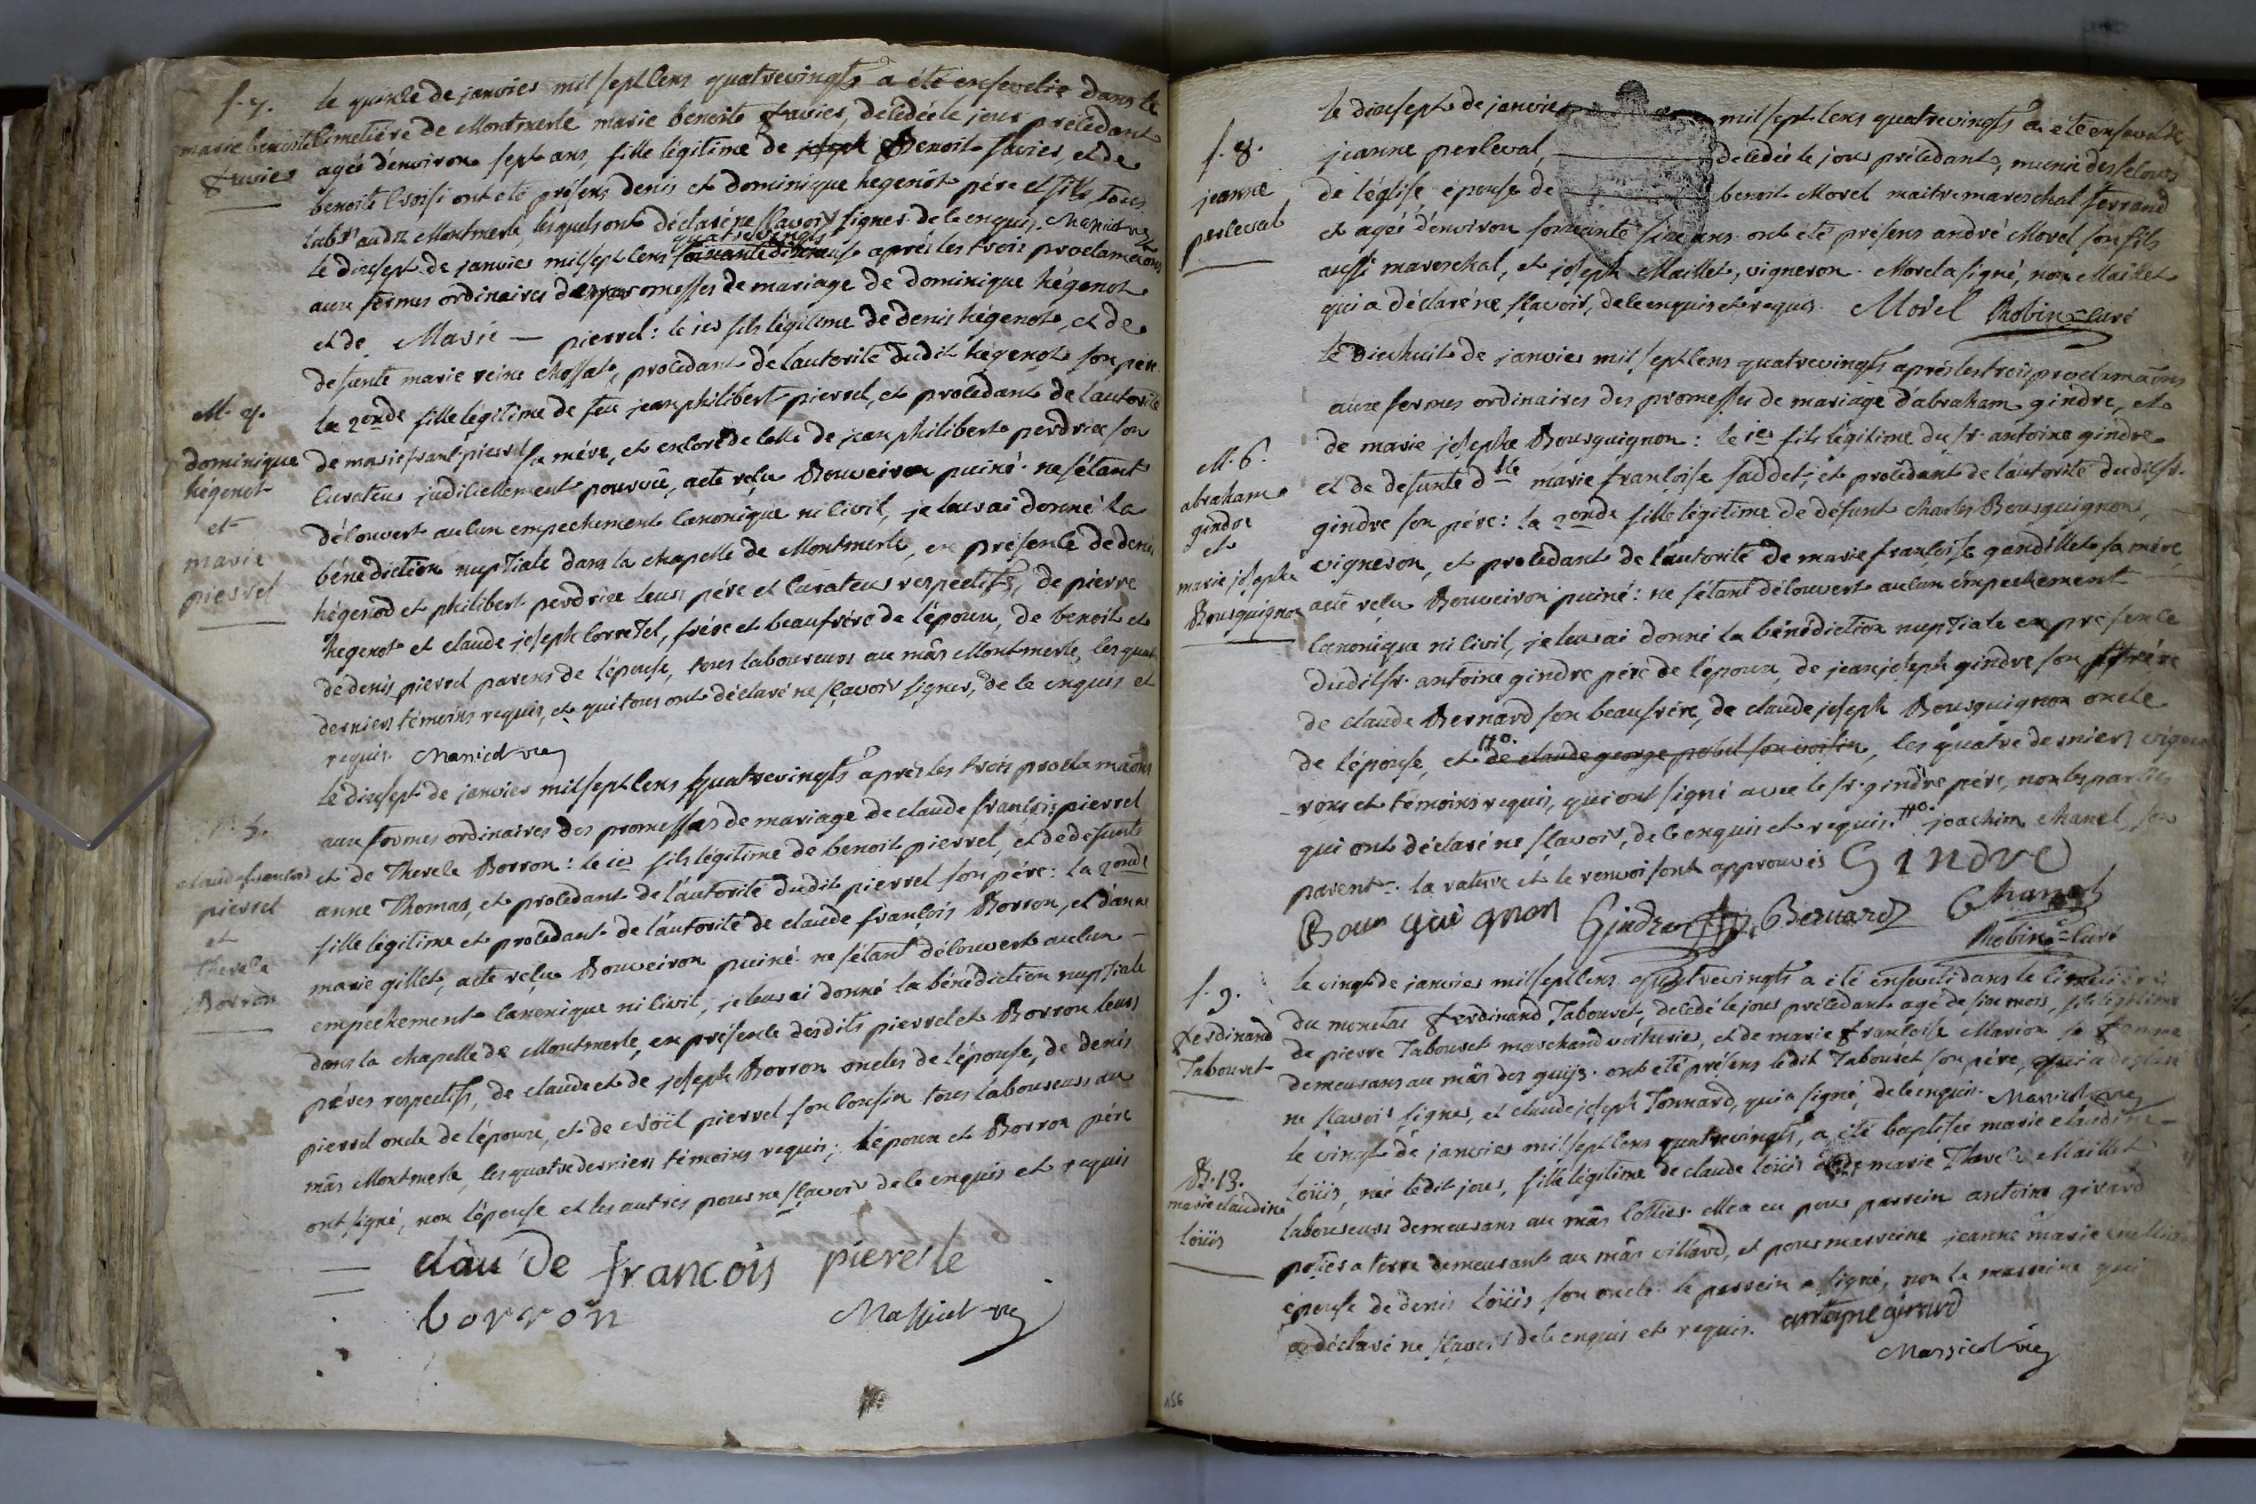 f. 7.
marie benoiste
favier
le quinze de janvier mil sept cens quatrevingts a été ensevelie dans le
cimetiére de Montmerle marie benoite favier, décédée le jour précédant
agée d'environ sept ans, fille légitime de joseph Benoit favier, et de
benoite ont été présens denis et dominique hegenot pére et fils, tous
labrs aud. Montmerle, lesquels ont déclaré ne sçavoir signer de ce enquis. Massicot vic
quatrevingts
le dixsept de janvier mil sept cens soixante dix neuf aprés les trois proclamaõns
aux formes ordinaires des promesses de mariage de dominique hégenot
et de Marie — pierrel : le 1er fils légitime de denis hégenot, et de
defunte marie reine chossat, procédant de l'autorité dudit hégenot son pére
la 2onde fille légitime de feu jean philibert pierrel, et procédant de l'autorité
M. 4.
dominique
hégenot
et
marie
pierrel
de sa mére, et encore de celle de jean philibert perdrix son
curateur judiciellement pourvû, acte reçu Bouveiron puiné. ne s'étant
découvert aucun empechement canonique ni civil, je leur ai donné la
bénédiction nuptiale dans la chapelle de Montmerle, en présence de denis
hégenod et philibert perdrix leurs pére et curateur respectifs, de pierre
hegenot et claude joseph corretel, frére et beaufrére de l'époux, de benoit et
de denis pierrel parens de l'épouse, tous laboureurs au mâs Montmerle, les quatre
derniers témoins requis, et qui tous ont déclaré ne sçavoir signer, de ce enquis et
requis. Massicot vic
M. 5.
claude françois
pierrel
et
therese
Borron
le dixsept de janvier mil sept cens quatrevingts aprés les trois proclamaõns
aux formes ordinaires des promesses de mariage de claude françois pierrel
et de Therese Borron : le 1er fils légitime de benoit pierrel, et de defunte
anne Thomas, et procédant de l'autorité dudit pierrel son pére : la 2onde
fille légitime et procédant de l'autorité de claude françois Borron, et d'anne
marie gillet, acte reçu Bouveiron puiné. ne s'étant découvert aucun
empéchement canonique ni civil, je leur ai donné la bénédiction nuptiale
dans la chapelle de Montmerle, en présence desdits pierrel et Borron leurs
péres respectifs, de claude et de joseph Borron oncles de l'épouse, de denis
pierrel oncle de l'époux, et de noël pierrel son cousin tous laboureurs au
mâs Montmerle, les quatre derniers témoins requis ; l'époux et Borron pére
ont signé, non l'épouse et les autres pour ne sçavoir de ce enquis et requis
clau de francois pierelle
borron Massicot vic
f. 8.
jeanne
perceval
le dixsept de janvier mil sept cens quatrevingts a été ensevelie
jeanne perceval, décédée le jour précédant, munie des secours
de l'église, épouse de benoit Morel maitre mareschal ferrand
et agée d'environ soixante six ans. ont été présens andré Morel son fils
aussi mareschal, et joseph Maillet, vigneron. Morel a signé, non Maillet
qui a déclaré ne sçavoir, de ce enquis et requis. Morel Robin curé
M. 6.
abraham
gindre
et
marie josephe
Bourguignon
le dixhuit de janvier mil sept cens quatrevingts aprés les trois proclamaõns
aux formes ordinaires des promesses de mariage d'abraham gindre, et
de marie josephe Bourguignon : le 1er fils légitime du sr. antoine gindre
et de defunte dlle marie françoise faddet, et procédant de l'autorité dudit sr.
gindre son pére : la 2onde fille légitime de défunt charles Bourguignon,
vigneron, et procédant de l'autorité de marie françoise gandillet sa mére,
acte reçu Bouveiron puiné : ne s'étant découvert aucun empechement
canonique ni civil, je leur ai donné la bénédiction nuptiale en présence
dudit sr. antoine gindre pére de l'époux, de jean joseph gindre son frére
de claude Bernard son beaufrére, de claude joseph Bourguignon oncle
de l'épouse, et de claude george son voisin, les quatre derniers vigne
rons et témoins requis, qui ont signé avec le sr. gindre pére, non les parties
qui ont déclaré ne sçavoir, de ce enquis et requis. joachim chanel, son
parent. la rature et le renvoi sont approuvés Gindre
Bourguignon Gindre Bernard Chanel
Robin curé
f. 9.
ferdinand
Tabouret
le vingt de janvier mil sept cens quatrevingts a été enseveli dans le cimetiére
du monetai ferdinand Tabouret, décédé le jour précédant agé de six mois, fils légitime
de pierre Tabouret marchand voiturier, et de marie françoise Marion sa femme
demeurans au mâs des guijs. ont été présens ledit Tabouret son pére, qui a déclaré
ne sçavoir signer, et claude joseph Tonnard, qui a signé, de ce enquis. Massicot vic
B. 13.
marie claudine
loüis
le vingt de janvier mil sept cens quatrevingts, a été baptisée marie claudine
loüis, née ledit jour, fille légitime de claude loüis et de marie Therese Maillet
laboureurs demeurans au mâs elle a eu pour parrein antoine girard
potier a terre demeurant au mâs villard, et pour marreine jeanne marie
épouse de denis loüis son oncle. le parrein a signé, non la marreine qui
a déclaré ne sçavoir de ce enquis et requis. antoine girard
Massicot vic
156